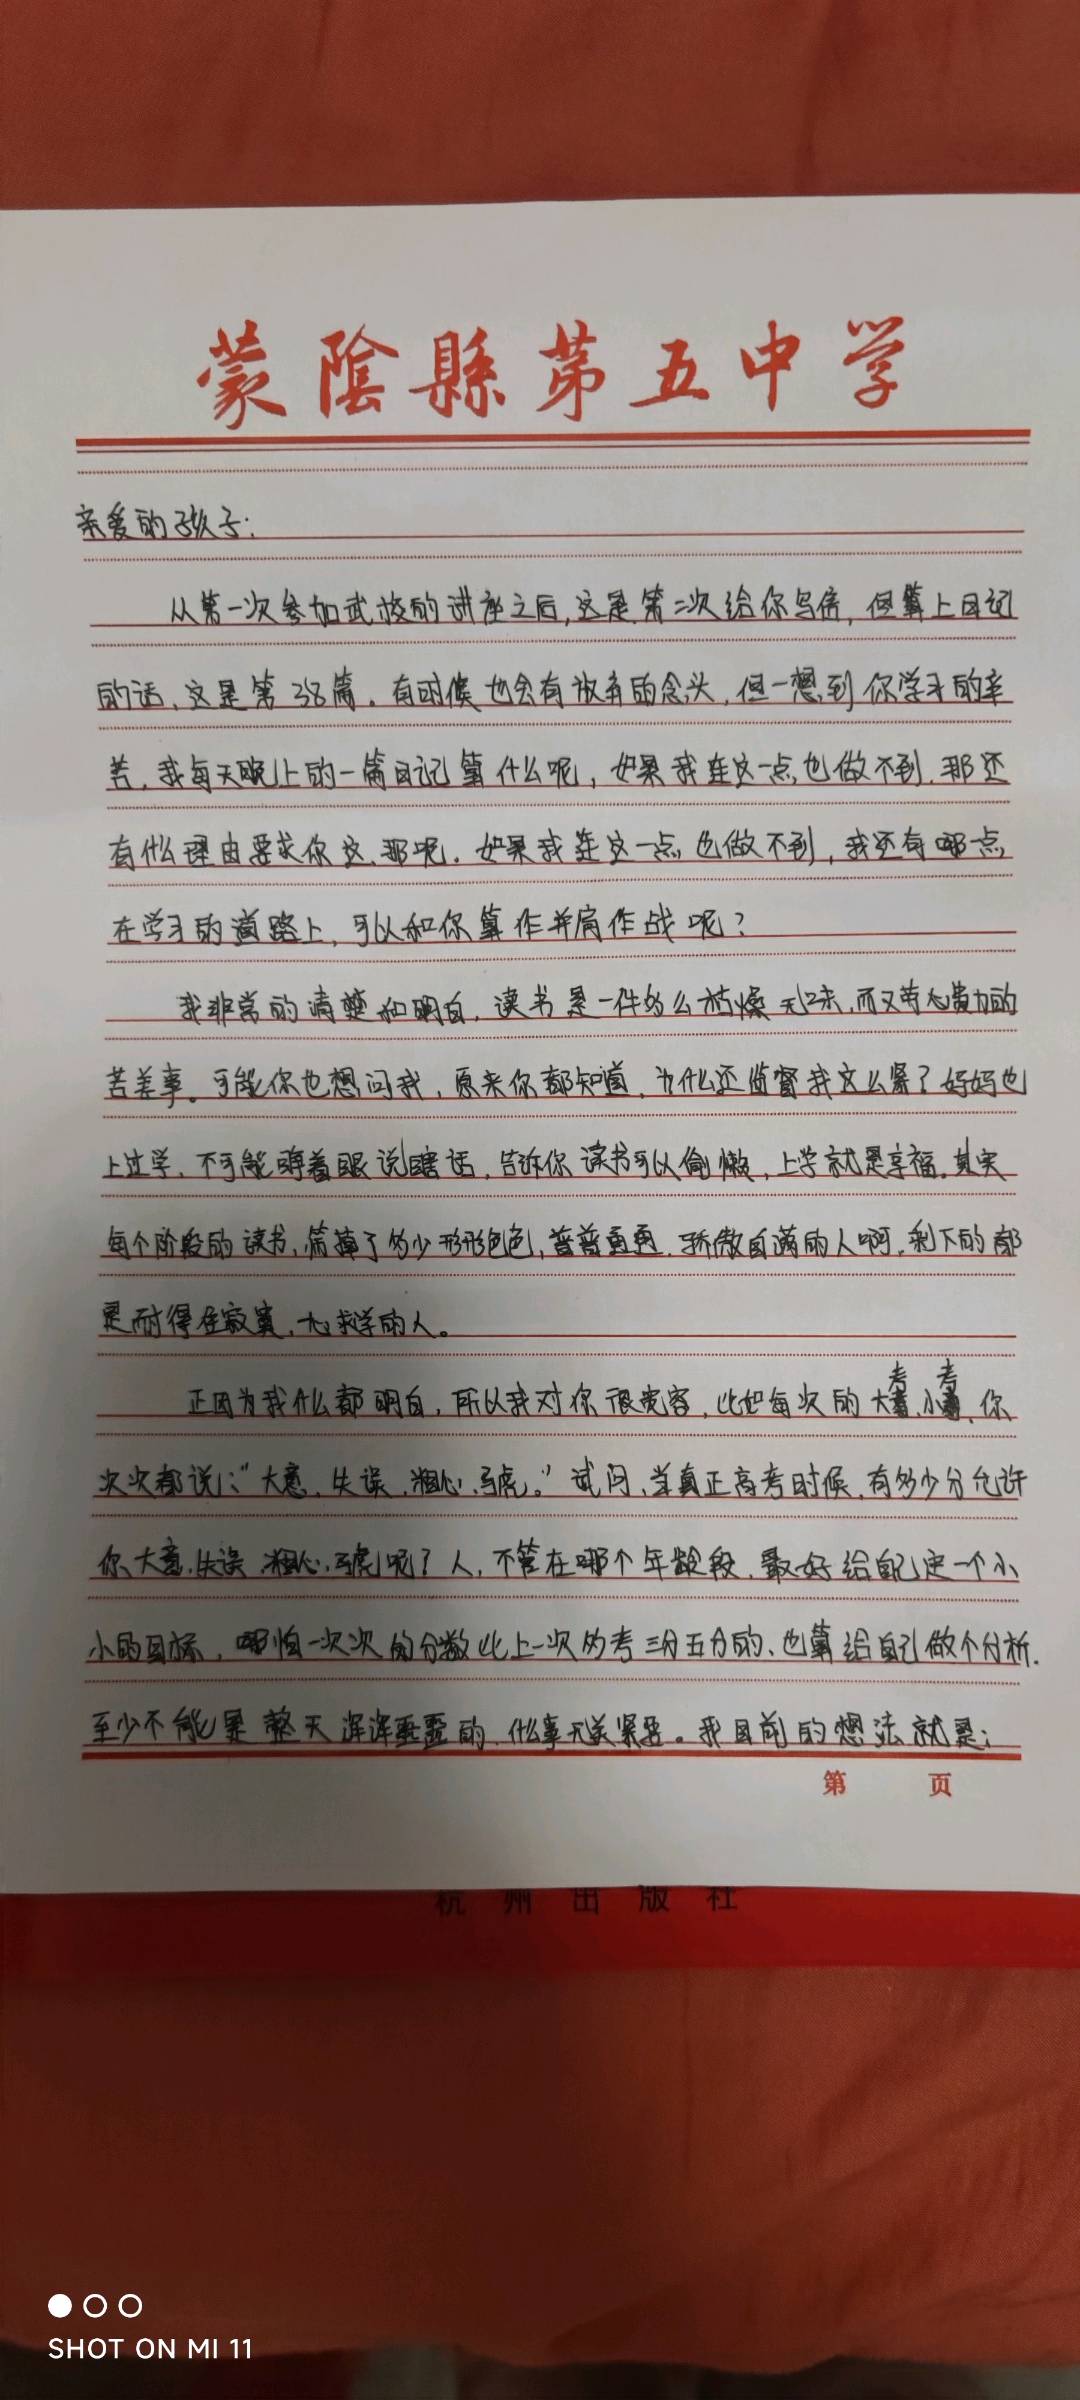 蒙陰縣第五中学
亲爱的孩子:
从第一次参加武校的讲座之后,这是第二次给你写信,但算上日记
的话,这是第38篇。有时候也会有放弃的念头,但一想到你学习的辛
苦,我每天晚上的一篇日记算什么呢,如果我连这一点也做不到,那还
有什么理由要求你这、那呢。如果我连这一点也做不到,我还有哪一点
在学习的道路上,可以和你算作并肩作战呢?
我非常的清楚和明白,读书是一件多么枯燥无味,而又劳心费力的
苦差事。可能你也想问我,原来你都知道,为什么还监督我这么紧?妈妈也
上过学,不可能睁着眼说瞎话,告诉你读书可以偷懒,上学就是享福。其实
每个阶段的读书,筛掉了多少形形色色,普普通通,骄傲自满的人啊,剩下的都
是耐得住寂寞,心求学的人。
正因为我什么都明白,所以我对你很宽容,比如每次的大考、小考,你
次次都说:“大意,失误,粗心,马虎。”试问,当真正高考时候,有多少分允许
你大意,失误,粗心,马虎呢?人,不管在哪个年龄段,最好给自己定一个小
小的目标,哪怕一次次的分数比上一次多考三分五分的、也算给自己做个分析.
至少不能是整天浑浑噩噩的,什么事无关紧要。我目前的想法就是:
第 页
杭州出版社
SHOT ON MI 11